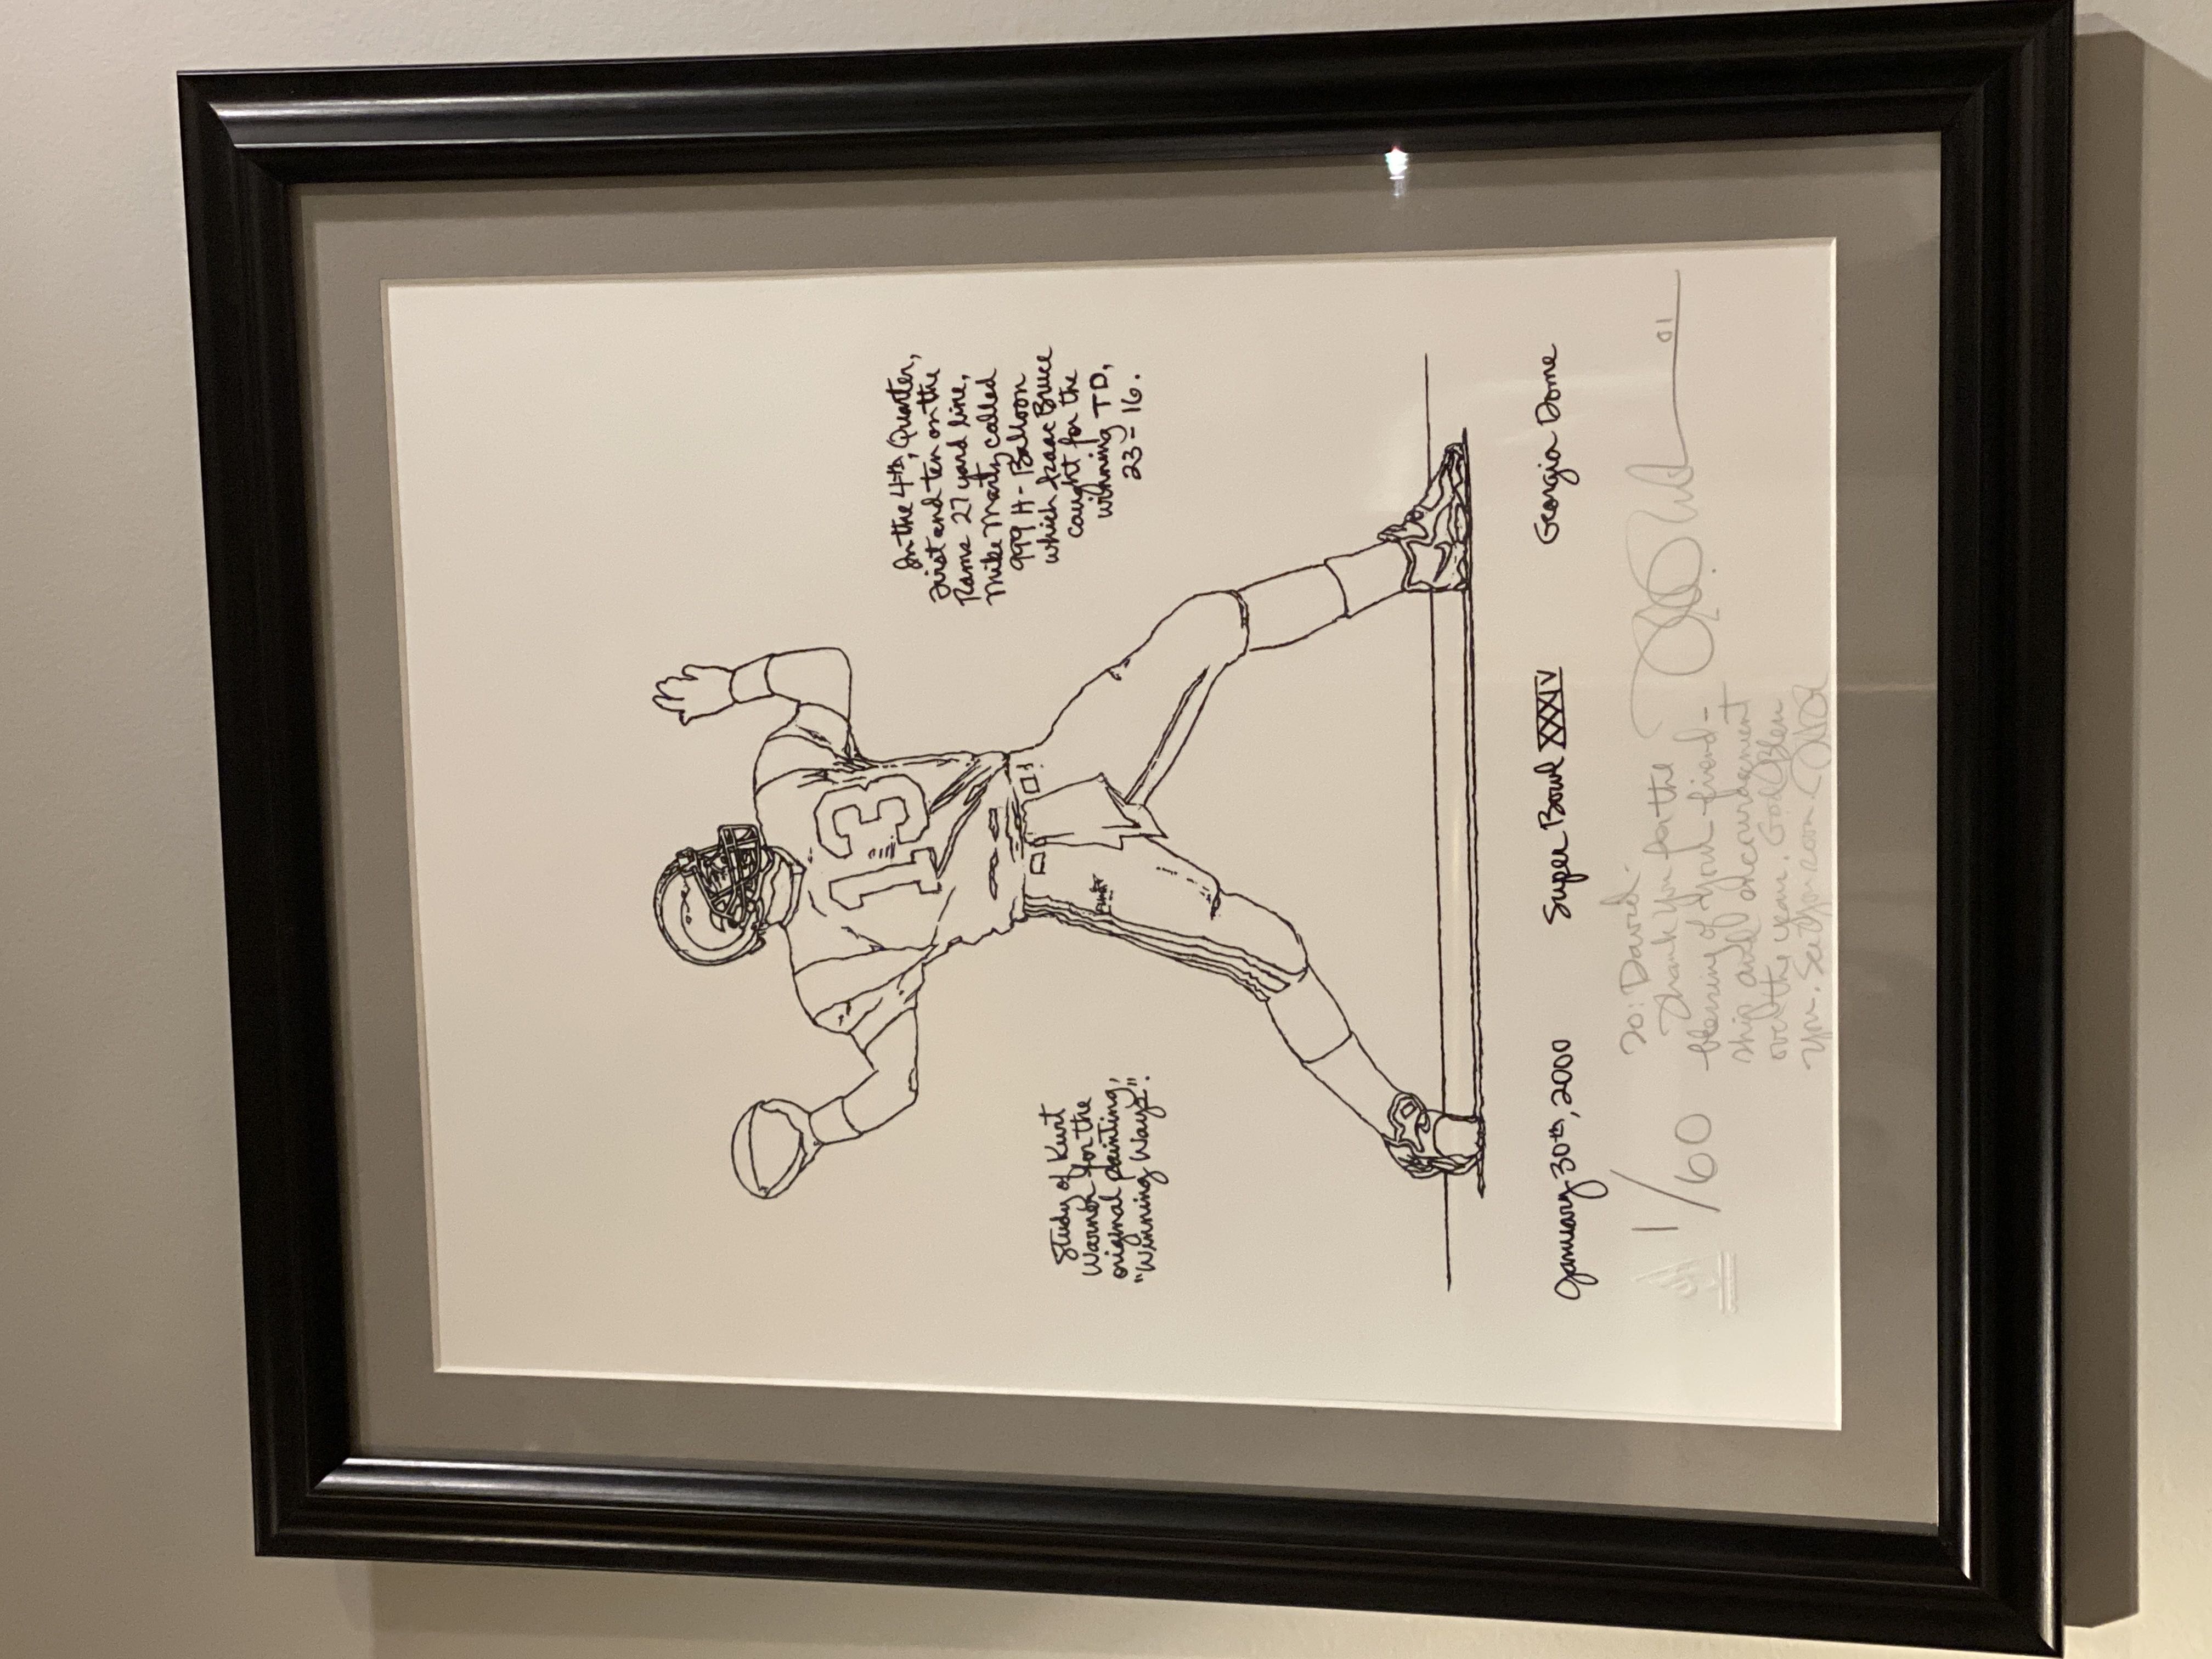 In the 4th, Quarter,
First and ten on the
Rams 27 yard line,
Mike Martz called
999 H-Balloon
which Isaac Bruce
caught for the
winning TD,
23-16.
Study of Kurt
Warner for the
original painting,
"Winning Ways".
13
January 30th, 2000 Super Bowl XXXIV Georgia Dome
1/60
To: David.
Thank you for the
blessing of your friend-
ship and encouragement
over the years. God Bless
you. See you soon.
01